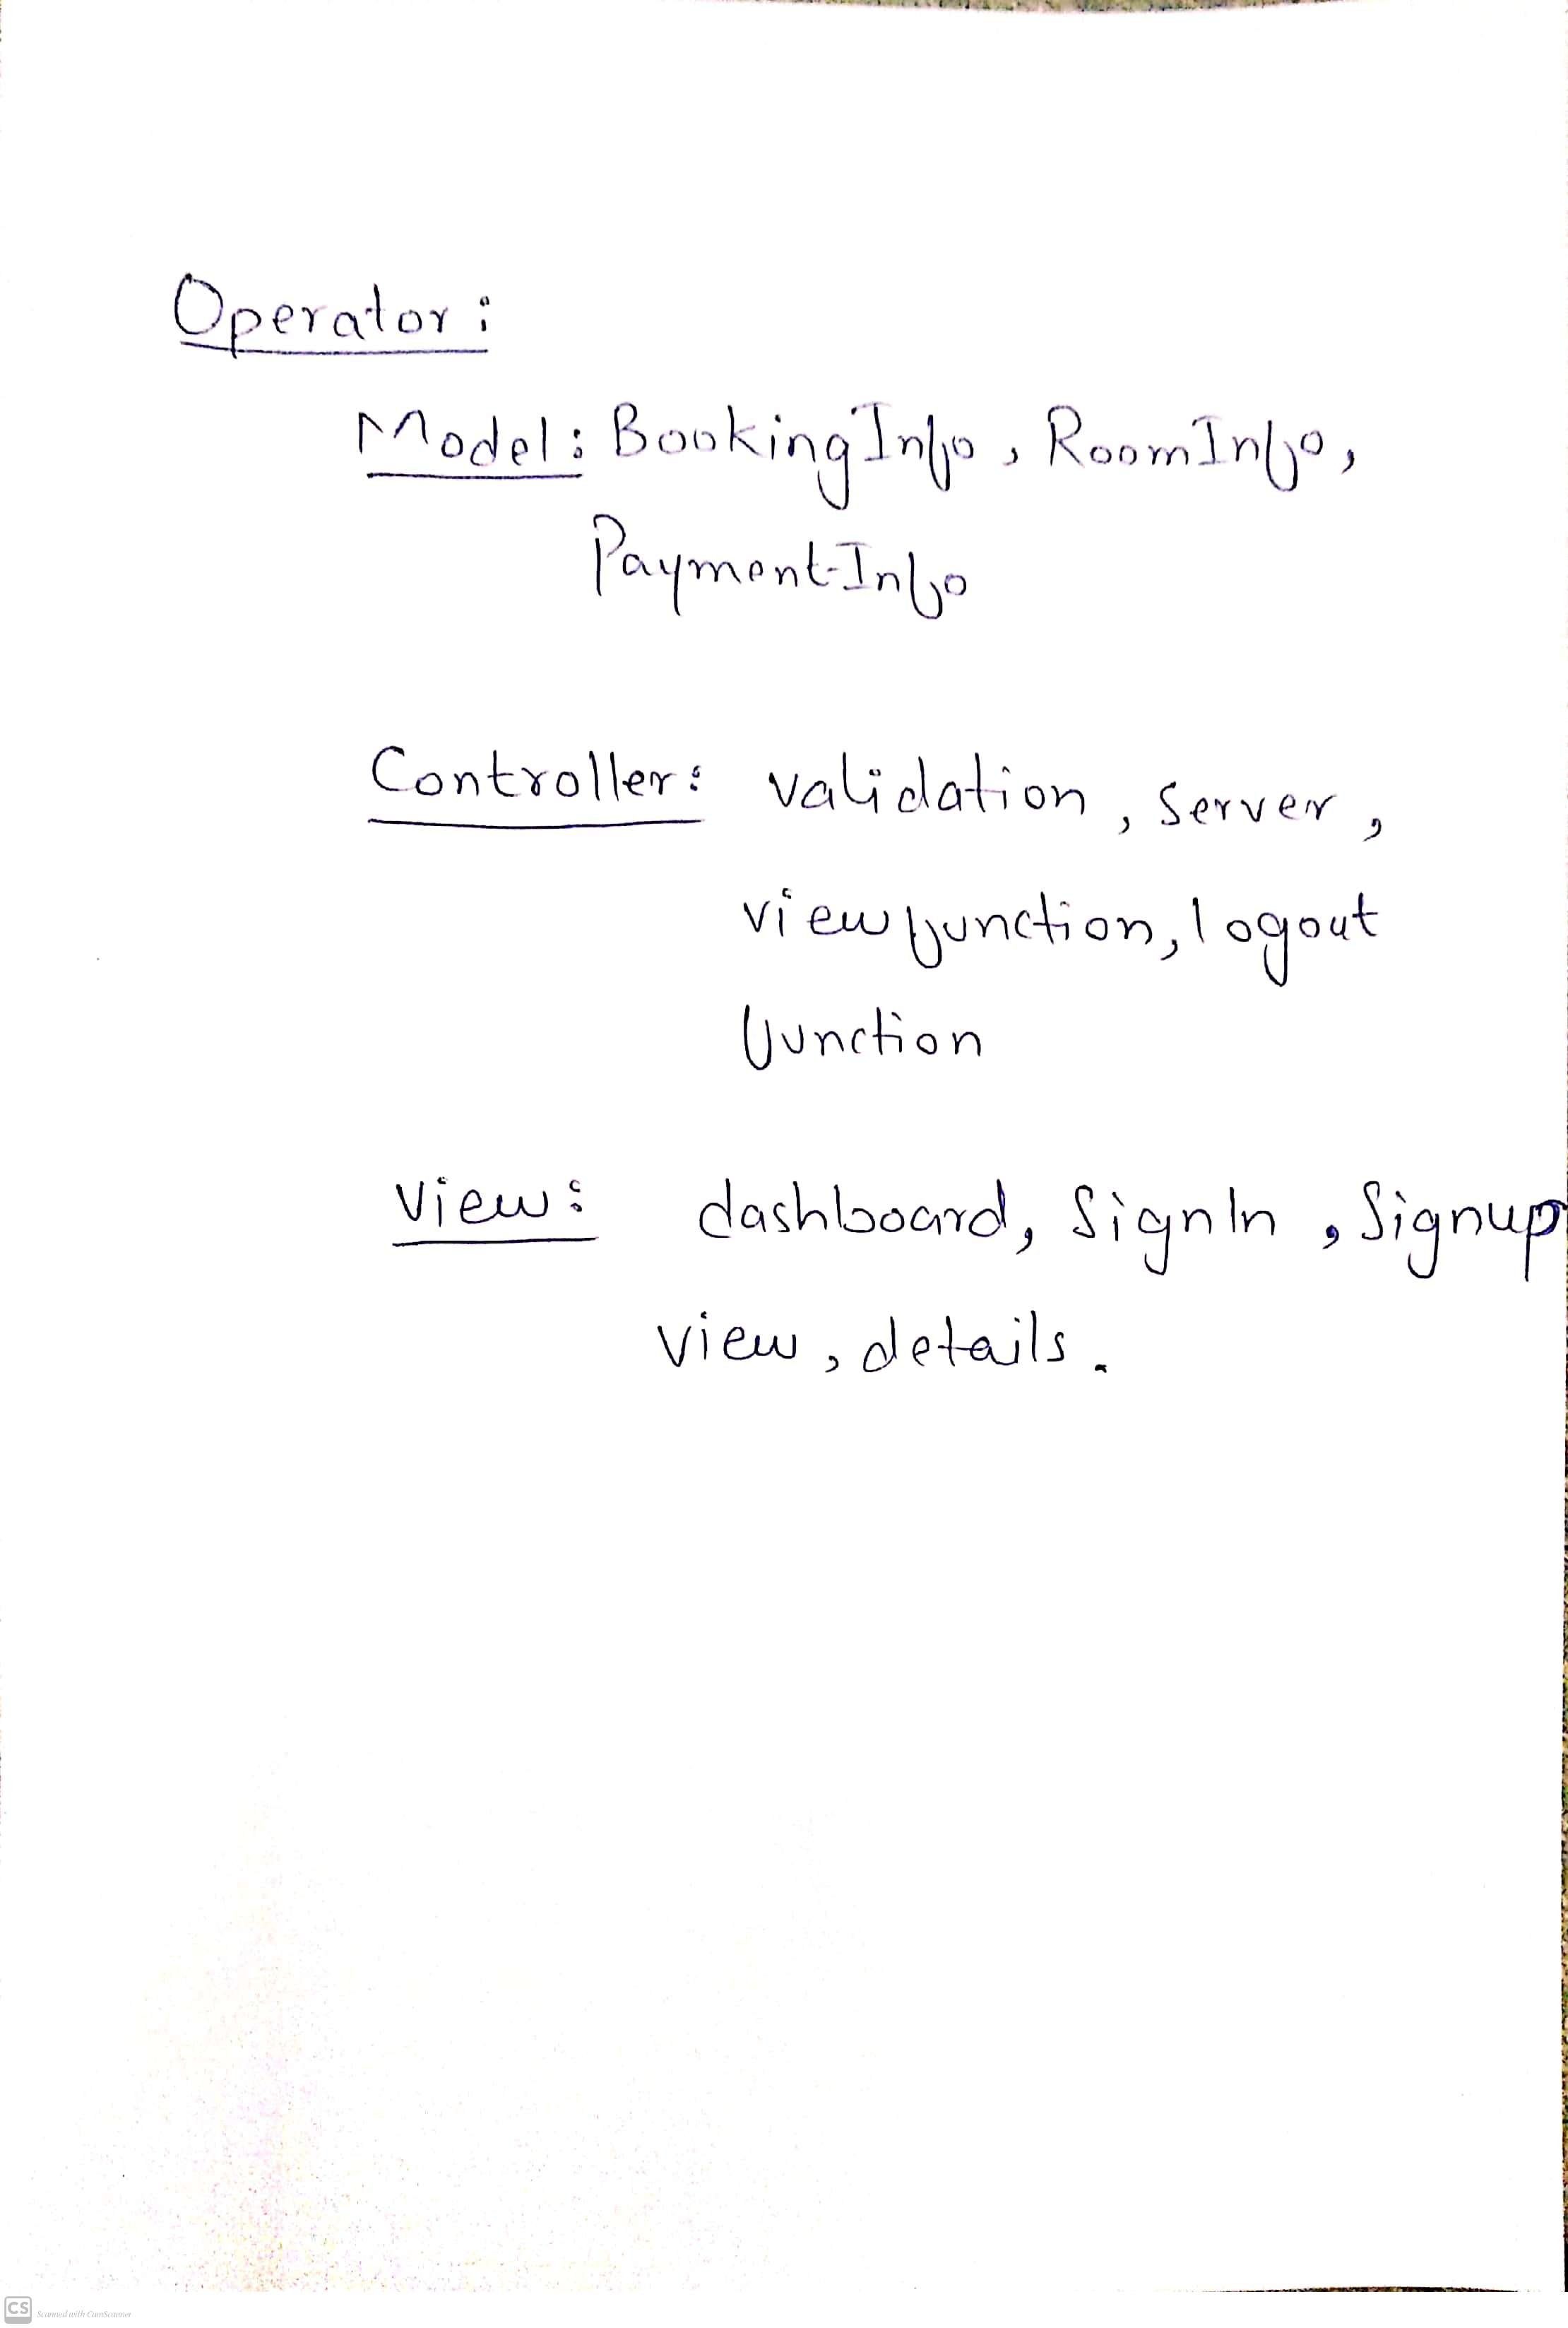 Operator:
Model: BookingInfo, RoomInfo,
PaymentInfo
Controller: validation, server,
view function, logout
function
view: dashboard, SignIn, Signup
view, details.
CS Scanned with CamScanner